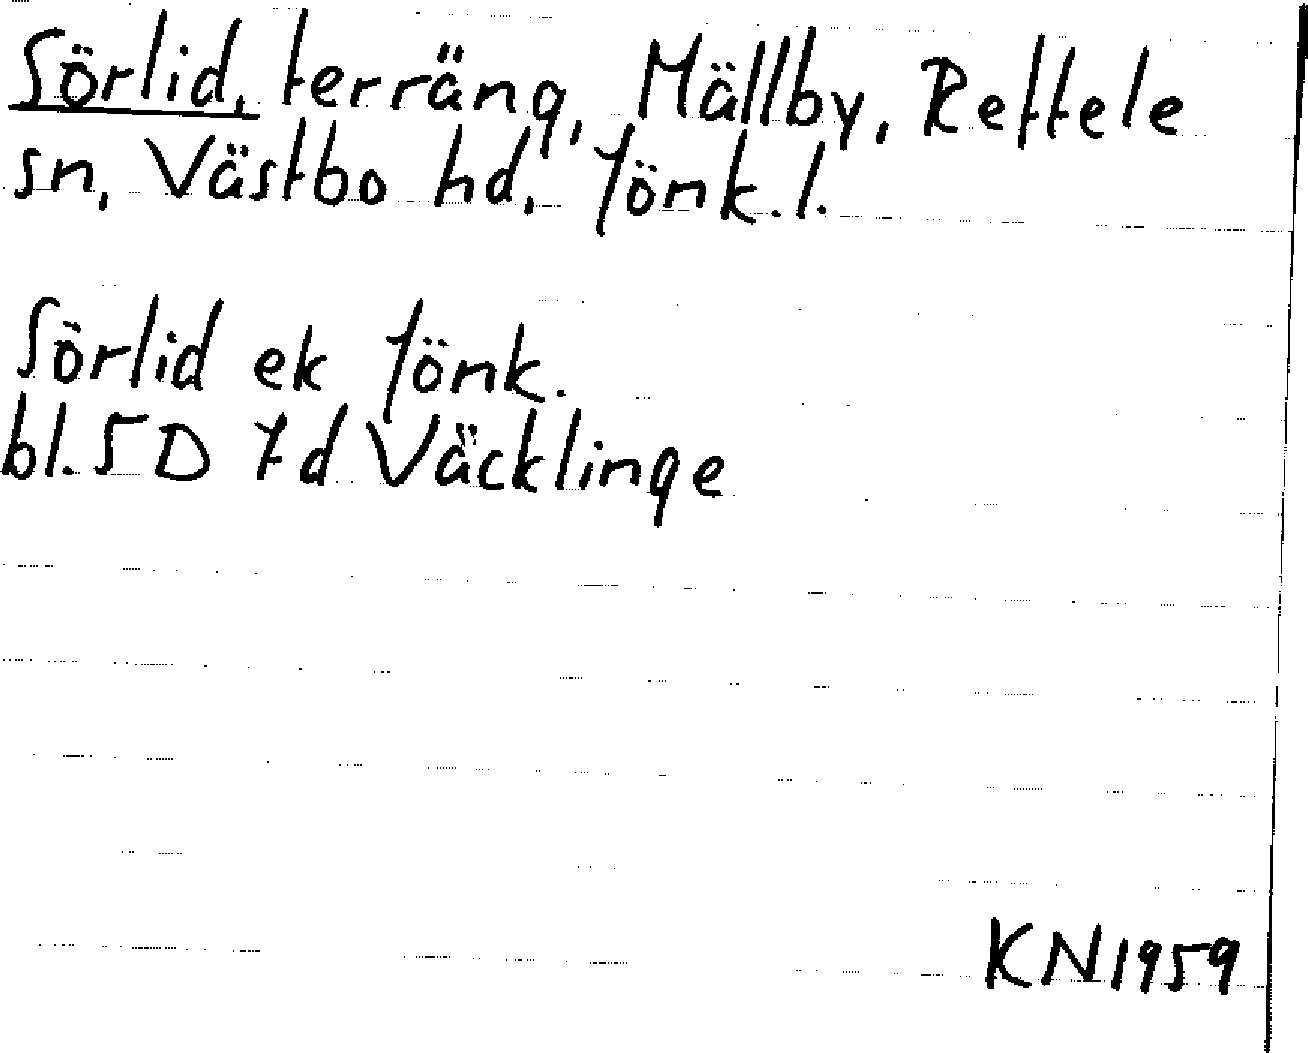 Sörlid, terräng, Mällby, Reftele
sn, Västbo hd, Jönk. l.
Sörlid ek Jönk.
bl. 5D 7d Väcklinge
KN 1959